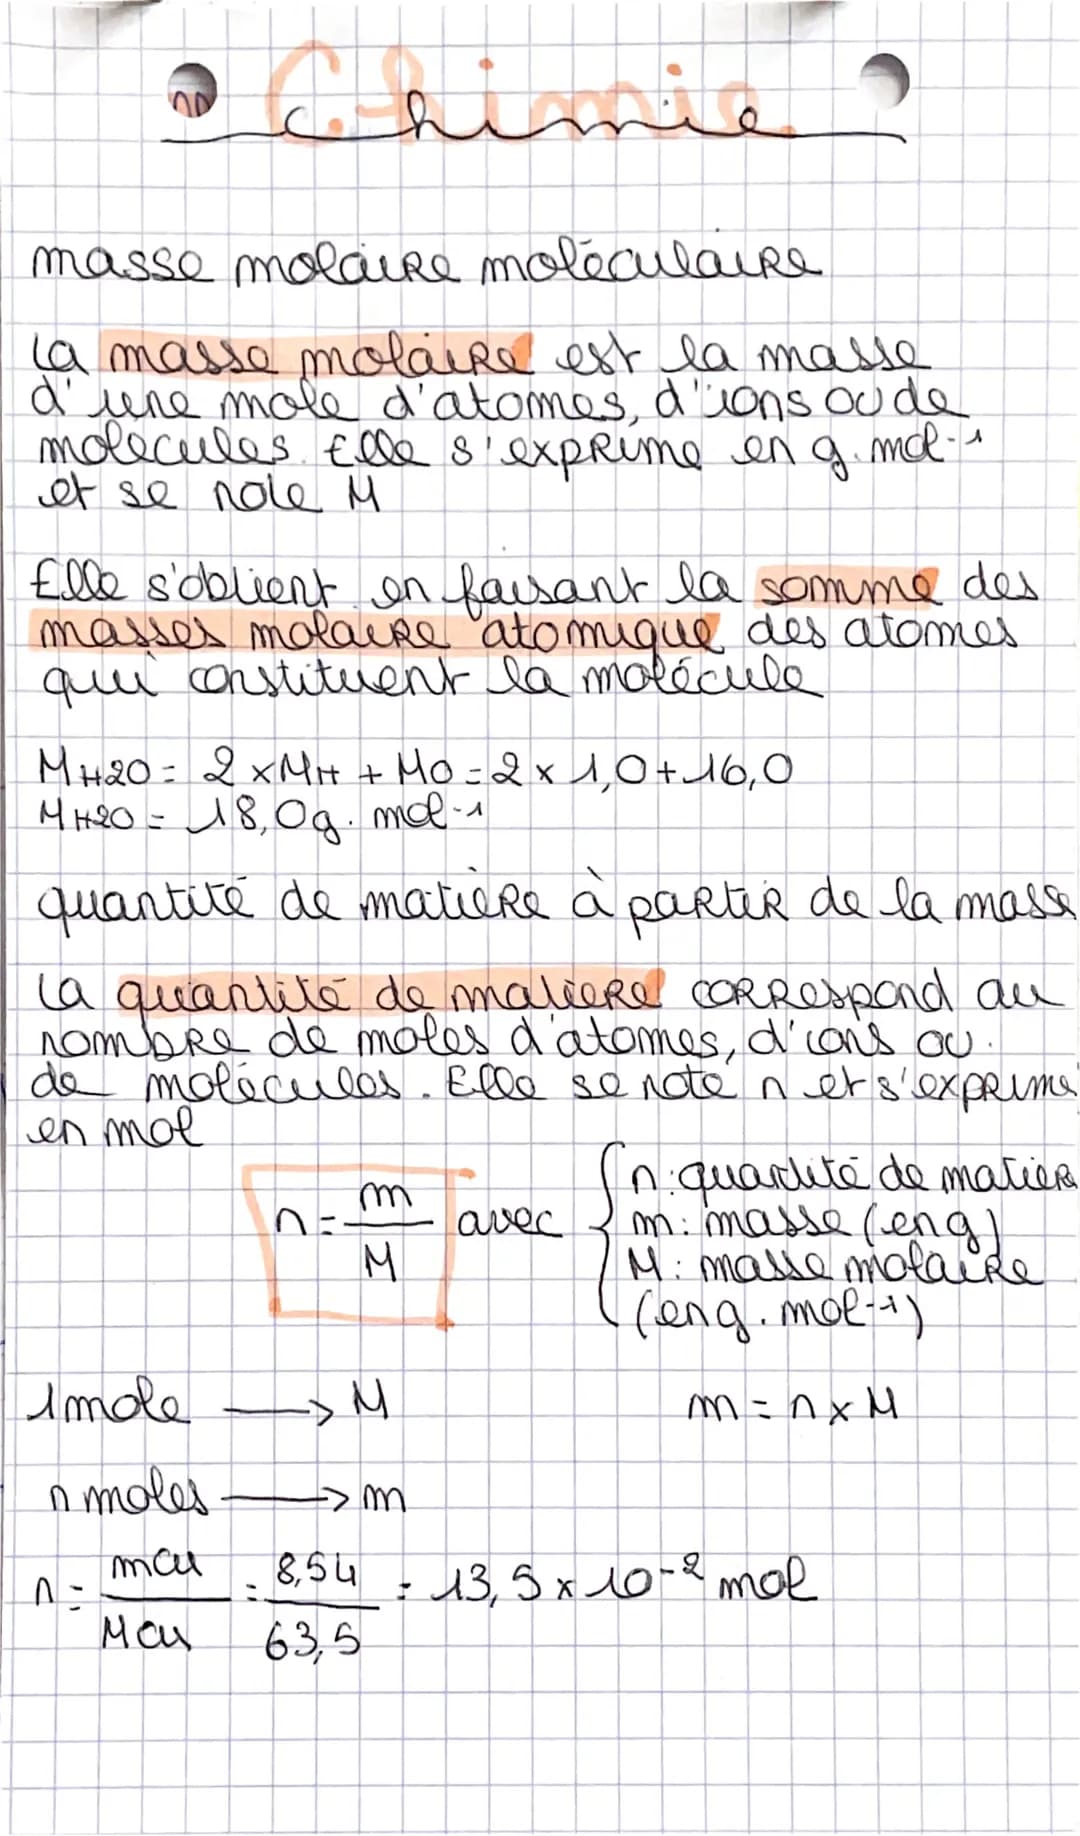 Chimie
masse molaire moléculaire
La masse molaire est la masse
d'une mole d'atomes, d'ions ou de
molécules. Elle s'exprime en g.mol-1
et se note M
Elle s'obtient en faisant la somme des
masses molaire atomique des atomes
qui constituent la molécule
MH2O = 2 x MH + MO = 2 x 1,0 + 16,0
MH2O = 18,0g. mol-1
quantité de matière à partir de la masse
La quantité de matiere correspond au
nombre de moles d'atomes, d'ions ou
de molécules. Elle se note n et s'exprime
en mol
n = m / M avec { n: quantité de matière
m: masse (en g)
M: masse molaire
(en g. mol-1)
1 mole → M m = n x M
n moles → m
n = mcu / Mcu = 8,54 / 63,5 = 13,5 x 10-2 mol